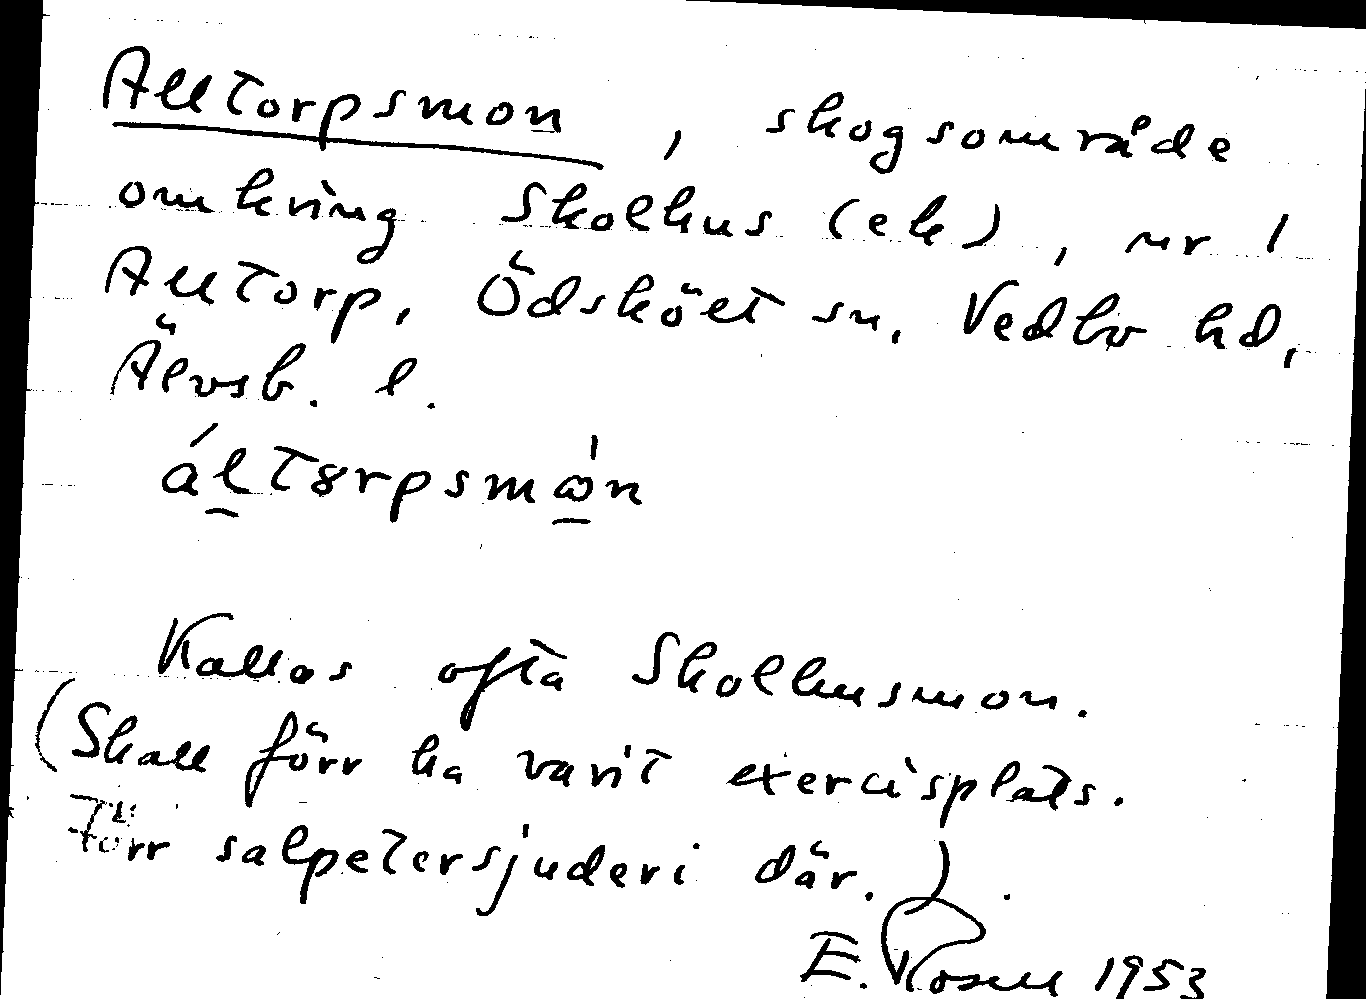 Alltorpsmon, skogsområde
omkring Skolhus (ek), nr 1
Alltorp, Ödsköet sn, Vedbo hd,
Älvsb. l.
Kallas ofta Skolhusmon.
(Skall förr ha varit exercisplats.
Förr salpetersjuderi där.)
E. Rosell 1953